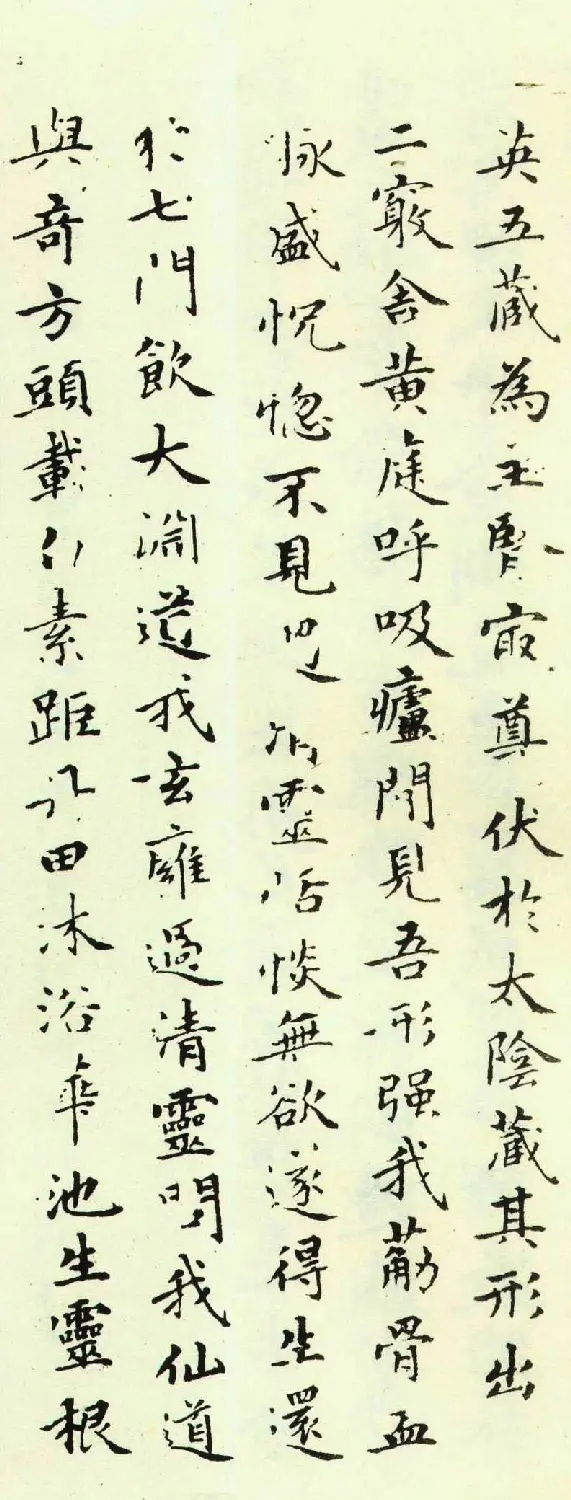 英五藏為主腎㝡尊伏於太陰藏其形出
二竅舍黄庭呼吸廬間見吾形强我筋骨血
脉盛怳惚不見過清靈恬惔無欲遂得生還
於七門飲大淵道我玄雍過清靈問我仙道
與奇方頭載白素距丹田沐浴華池生靈根